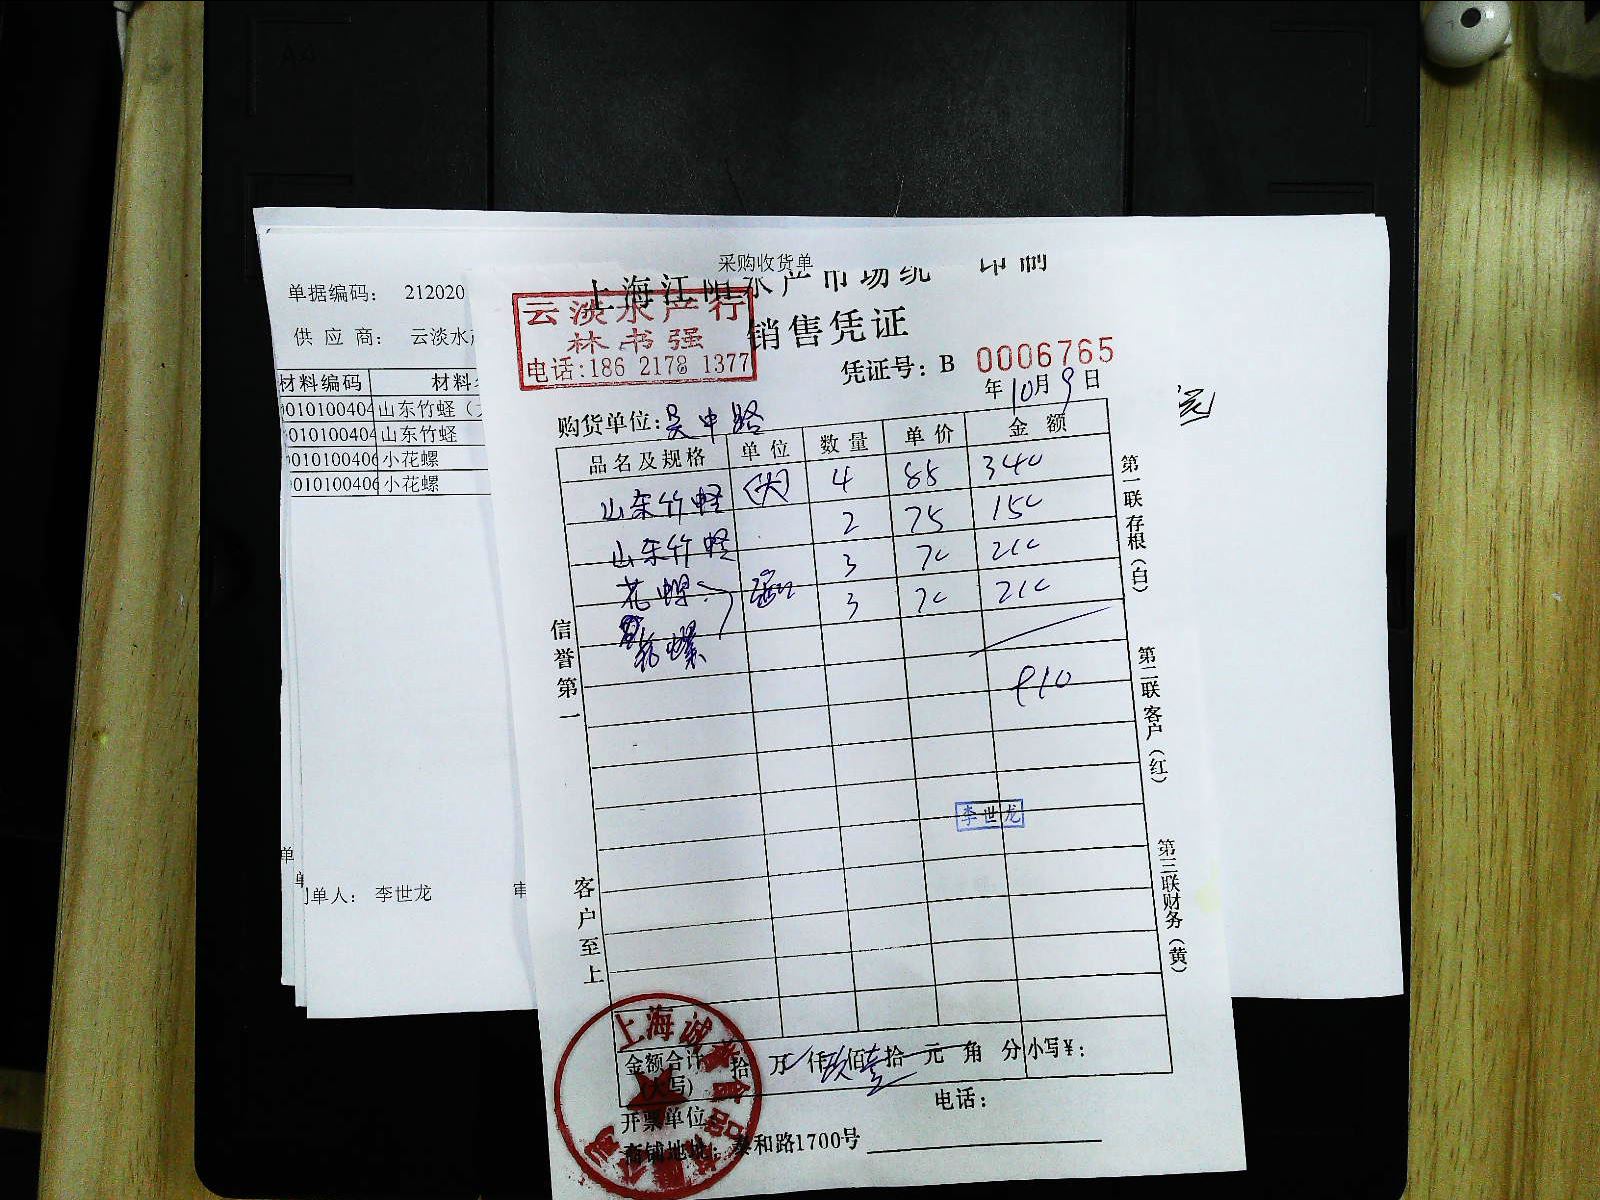 采购收货单
单据编码： 212020
供 应 商： 云淡水产
材料编码 材料
010100404 山东竹蛏（大
010100404 山东竹蛏
010100406 小花螺
010100406 小花螺
单
单
制单人： 李世龙 审
上海江阳水产市场统一印制
云淡水产行
林书强
电话:186 2178 1377
销售凭证
凭证号：B 0006765
年10月9日
购货单位:吴中路
品名及规格 单位 数量 单价 金额
山东竹蛏 (大) 4 85 340
山东竹蛏 2 75 150
花螺 3 70 210
花螺 3 70 210
910
李世龙
信誉第一
客户至上
第一联存根（白）
第二联客户（红）
第三联财务（黄）
金额合计(大写) 拾 万 仟 玖佰壹拾 元 角 分 小写¥：
开票单位 电话：
商铺地址：泰和路1700号